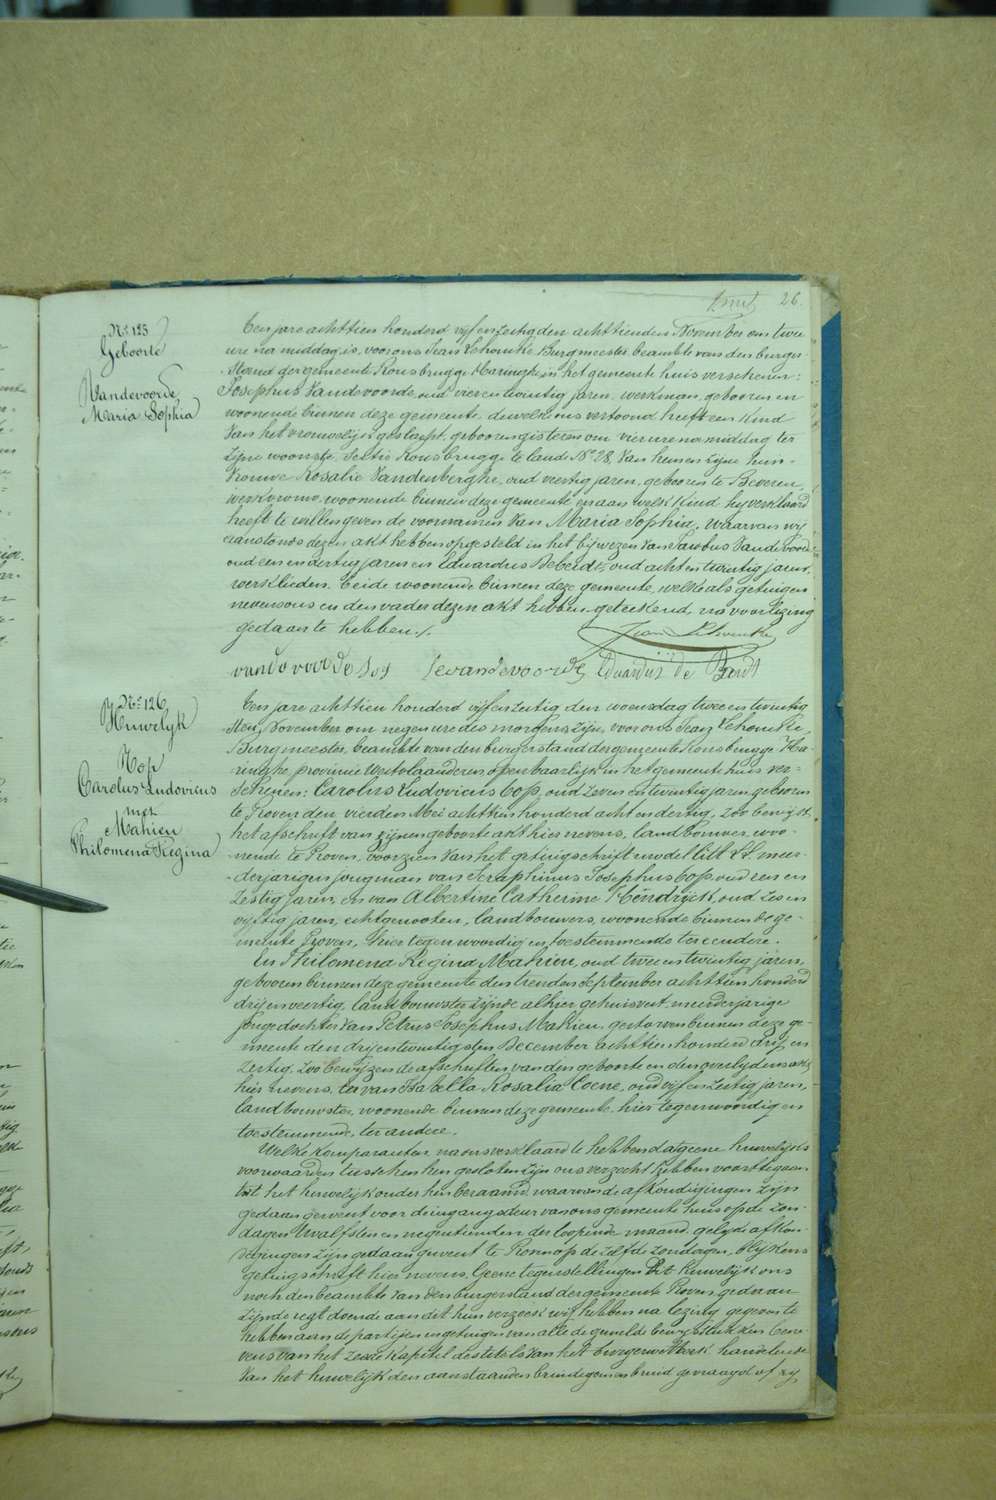 26.
N.º 125
Geboorte
Vandevoorde
Maria Sophia
Ten jare achttien honderd vijf en zestig den achttienden November om twee
ure na middag, is, voor ons Jean Lehoucke Burgmeester beambte van den burger
stand der gemeente Rousbrugge Haringhe in het gemeente huis verschenen:
Josephus Vandevoorde, oud vier en twintig jaren, werkman, geboren en
woonende binnen deze gemeente, dewelk ons vertoond heeft een kind
van het vrouwelijk geslacht, geboren gisteren om vier ure na middag ter
zijne woonste, sectie Rousbrugge te lande Nº 28, van hem en zijne huis-
vrouwe Rosalie Vandenberghe, oud veertig jaren, geboren te Beveren,
werkvrouw, woonende binnen deze gemeente, en aan welk kind hij verklaard
heeft te willen geven de voornamen van Maria Sophia, waarvan wij
aanstonds dezen akt hebben opgesteld in het bijwezen van Jacobus Vandevoorde
oud een en dertig jaren en Eduardus Debeidts, oud acht en twintig jaren,
werklieden, beide woonende binnen deze gemeente, welke als getuigen
nevens ons en den vader dezen akt hebben geteekend, na voorlezing
gedaan te hebben./.
Jean Lehoucke
vandovoorde Jos J evandevoorde Eduardus de
N.º 126
Huwelyk
Top
Carolus Ludovicus
met
Mahieu
Philomena Regina
Ten jare achttien honderd vijf en zestig den woensdag twee en twintig
sten November om negen ure des morgens zijn, voor ons Jean Lehoucke,
Burgmeester, beambte van den burgerstand der gemeente Rousbrugge Ha-
ringhe, provincie Westvlaanderen, openbaarlijk in het gemeente huis ver-
schenen: Carolus Ludovicus Top, oud zeven en twintig jaren, geboren
te Proven den vierden Mei achttien honderd acht en dertig, zoo bewijst
het afschrift van zijnen geboorte akt hier nevens, landbouwer, woo-
nende te Proven, voorzien van het getuigschrift model litt. meer-
derjarigen jongman van Seraphinus Josephus Top, oud een en
zestig jaren, en van Albertine Catherine Hendrijck, oud zes en
vijftig jaren, echtgenooten, landbouwers, woonende binnen de ge-
meente Proven, hier tegenwoordig en toestemmende ter eendere.
En Philomena Regina Mahieu, oud twee en twintig jaren,
geboren binnen deze gemeente den September achttien honderd
drij en veertig, landbouwster zijnde alhier gehuisvest, meerderjarige
jonge dochter van Petrus Josephus Mahieu, gestorven binnen deze ge-
meente den drij en twintigsten December achttien honderd drij en
zestig, zoo bewijzen de afschriften van den geboorte en den overlijdens akt
hier nevens, en van Isabella Rosalia Coene, oud vijf en zestig jaren,
landbouwster, woonende binnen deze gemeente, hier tegenwoordig en
toestemmende, ter andere.
Welke komparanten, na ons verklaard te hebben dat geene huwelijks
voorwaarden tusschen hen gesloten zijn ons verzocht hebben voort te gaan
tot het huwelijk onder hun beraamd, waarvan de afkondigingen zijn
gedaan geweest voor de ingangsdeur van ons gemeente huis op de zon-
dagen twaalfsten en negentienden der loopende maand, gelijke afkon-
digingen zijn gedaan geweest te Proven op de zelfde zondagen, blijkens
getuigschrift hier nevens. Geene tegenstellingen dit huwelijk ons
noch den beambte van den burgerstand der gemeente Proven gedaan
zijnde regt doende aan dit hun verzoek wij hebben na lezing gegeven te
hebben aan de partijen en getuigen van alle de gemelde bewijsstukken bene-
vens van het zesde kapitel des titels van het burger wetboek handelende
van het huwelijk den aanstaanden bruidegom en bruid gevraagd of zij